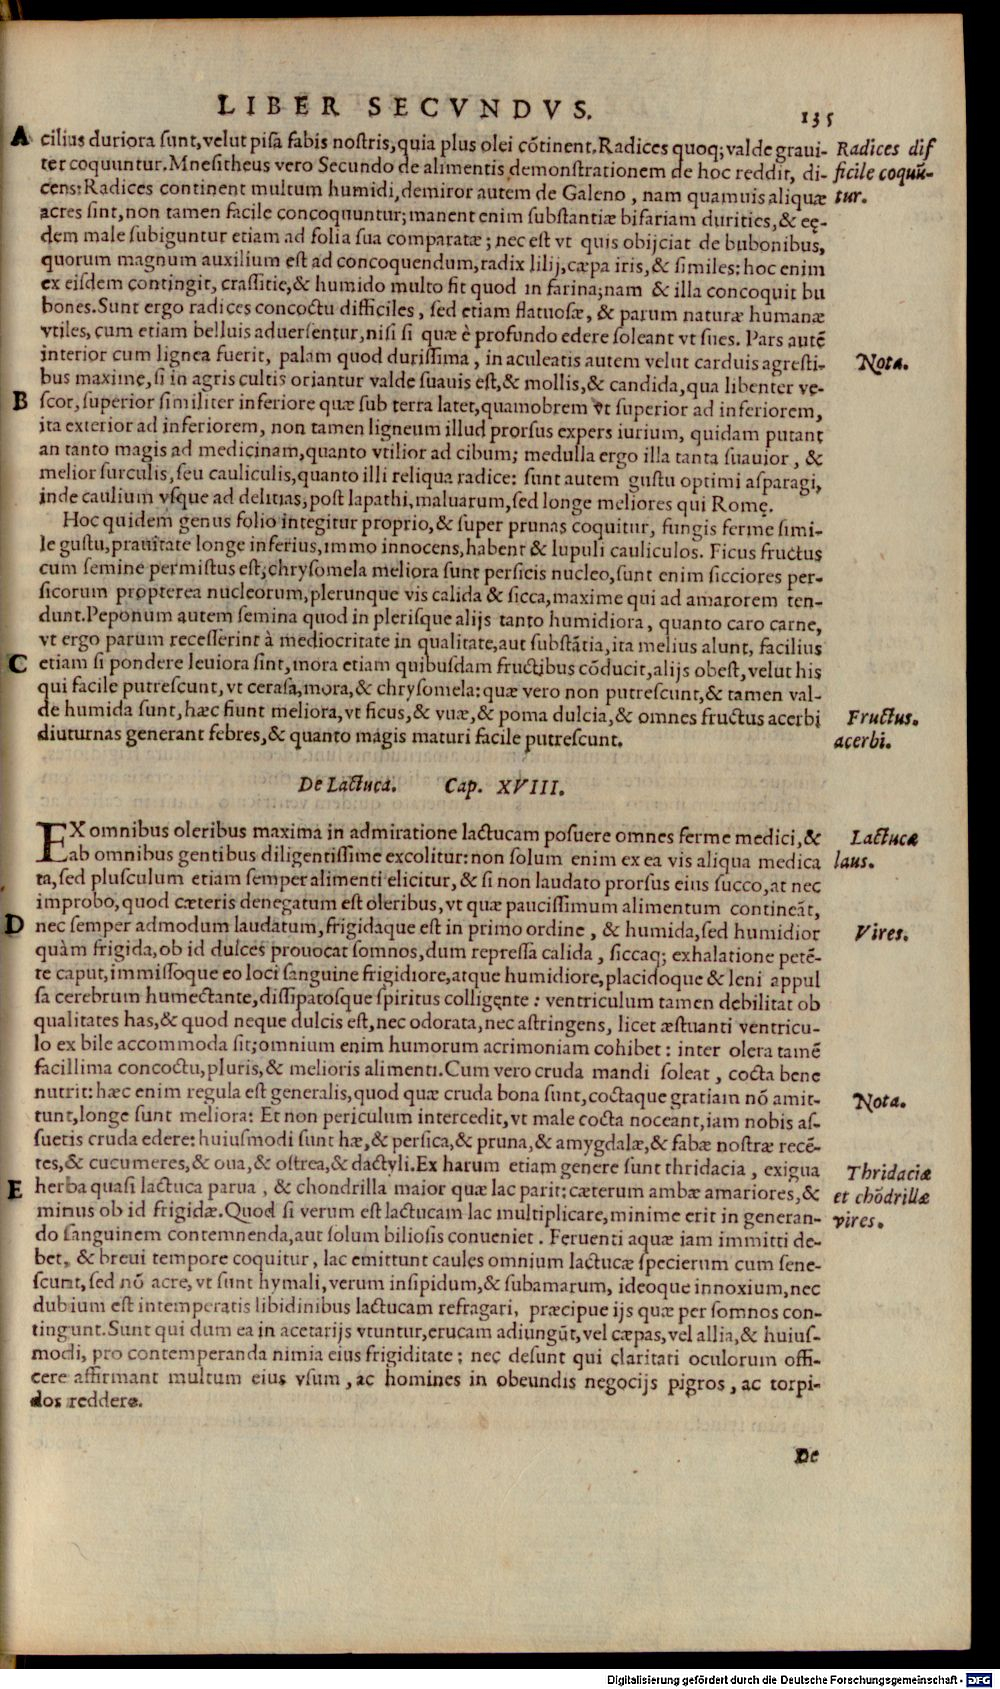 LIBER SECVNDVS. 135
A cilius duriora sunt, velut pisa fabis nostris, quia plus olei cōtinent. Radices quoq; valde graui- Radices dif
ter coquuntur. Mnesitheus vero Secundo de alimentis demonstrationem de hoc reddit, di- ficile coquū-
cens: Radices continent multum humidi, demiror autem de Galeno, nam quamuis aliquæ tur.
acres sint, non tamen facile concoquuntur; manent enim substantiæ bifariam durities, & eę-
dem male subiguntur etiam ad folia sua comparatæ; nec est vt quis obijciat de bubonibus,
quorum magnum auxilium est ad concoquendum, radix lilij, cæpa iris, & similes: hoc enim
ex eisdem contingit, crassitie, & humido multo fit quod in farina; nam & illa concoquit bu
bones. Sunt ergo radices concoctu difficiles, sed etiam flatuosæ, & parum naturæ humanæ
vtiles, cum etiam belluis aduersentur, nisi si quæ è profundo edere soleant vt sues. Pars autē
interior cum lignea fuerit, palam quod durissima, in aculeatis autem velut carduis agresti- Nota.
bus maxime, si in agris cultis oriantur valde suauis est, & mollis, & candida, qua libenter ve-
B scor, superior similiter inferiore quæ sub terra latet, quamobrem vt superior ad inferiorem,
ita exterior ad inferiorem, non tamen ligneum illud prorsus expers iurium, quidam putant
an tanto magis ad medicinam, quanto vtilior ad cibum; medulla ergo illa tanta suauior, &
melior surculis, seu cauliculis, quanto illi reliqua radice: sunt autem gustu optimi asparagi,
inde caulium vsque ad delitias, post lapathi, maluarum, sed longe meliores qui Romę.
Hoc quidem genus folio integitur proprio, & super prunas coquitur, fungis ferme simi-
le gustu, prauitate longe inferius, immo innocens, habent & lupuli cauliculos. Ficus fructus
cum semine permistus est, chrysomela meliora sunt persicis nucleo, sunt enim sicciores per-
sicorum propterea nucleorum, plerunque vis calida & sicca, maxime qui ad amarorem ten-
dunt. Peponum autem semina quod in plerisque alijs tanto humidiora, quanto caro carne,
vt ergo parum recesserint à mediocritate in qualitate, aut substātia, ita melius alunt, facilius
C etiam si pondere leuiora sint, mora etiam quibusdam fructibus cōducit, alijs obest, velut his
qui facile putrescunt, vt cerasa, mora, & chrysomela: quæ vero non putrescunt, & tamen val-
de humida sunt, hæc fiunt meliora, vt ficus, & vuæ, & poma dulcia, & omnes fructus acerbi Fructus.
diuturnas generant febres, & quanto magis maturi facile putrescunt. acerbi.
De Lactuca. Cap. XVIII.
EX omnibus oleribus maxima in admiratione lactucam posuere omnes ferme medici, & Lactucæ
ab omnibus gentibus diligentissime excolitur: non solum enim ex ea vis aliqua medica laus.
ta, sed plusculum etiam semper alimenti elicitur, & si non laudato prorsus eius succo, at nec
improbo, quod cæteris denegatum est oleribus, vt quæ paucissimum alimentum contineāt,
D nec semper admodum laudatum, frigidaque est in primo ordine, & humida, sed humidior Vires.
quàm frigida, ob id dulces prouocat somnos, dum repressa calida, siccaq; exhalatione petē-
te caput, immissoque eo loci sanguine frigidiore, atque humidiore, placidoque & leni appul
sa cerebrum humectante, dissipatosque spiritus colligente: ventriculum tamen debilitat ob
qualitates has, & quod neque dulcis est, nec odorata, nec astringens, licet æstuanti ventricu-
lo ex bile accommoda sit; omnium enim humorum acrimoniam cohibet: inter olera tamē
facillima concoctu, pluris, & melioris alimenti. Cum vero cruda mandi soleat, cocta bene
nutrit: hæc enim regula est generalis, quod quæ cruda bona sunt, coctaque gratiam nō amit- Nota.
tunt, longe sunt meliora: Et non periculum intercedit, vt male cocta noceant, iam nobis as-
suetis cruda edere: huiusmodi sunt hæ, & persica, & pruna, & amygdalæ, & fabæ nostræ recē-
tes, & cucumeres, & oua, & ostrea, & dactyli. Ex harum etiam genere sunt thridacia, exigua Thridaciæ
E herba quasi lactuca parua, & chondrilla maior quæ lac parit: cæterum ambæ amariores, & et chōdrillæ
minus ob id frigidæ. Quod si verum est lactucam lac multiplicare, minime erit in generan- vires.
do sanguinem contemnenda, aut solum biliosis conueniet. Feruenti aquæ iam immitti de-
bet, & breui tempore coquitur, lac emittunt caules omnium lactucæ specierum cum sene-
scunt, sed nō acre, vt sunt hymali, verum insipidum, & subamarum, ideoque innoxium, nec
dubium est intemperatis libidinibus lactucam refragari, præcipue ijs quæ per somnos con-
tingunt. Sunt qui dum ea in acetarijs vtuntur, erucam adiungūt, vel cæpas, vel allia, & huius-
modi, pro contemperanda nimia eius frigiditate; nec desunt qui claritati oculorum offi-
cere affirmant multum eius vsum, ac homines in obeundis negocijs pigros, ac torpi-
dos reddere.
De
Digitalisierung gefördert durch die Deutsche Forschungsgemeinschaft - DFG